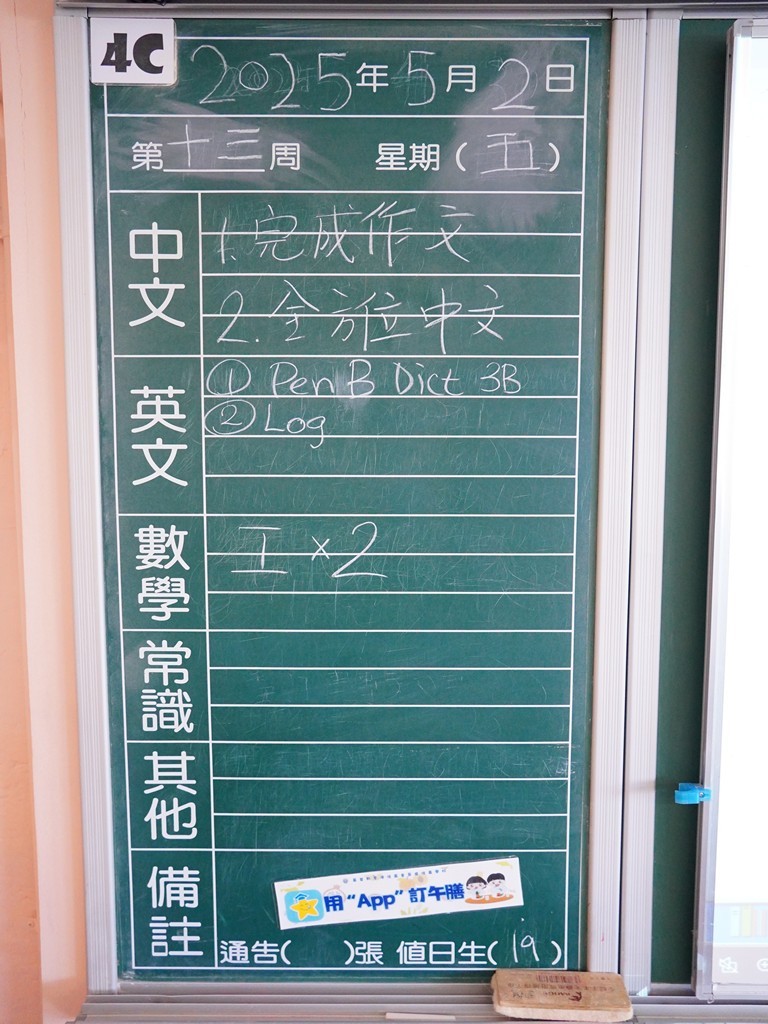 4C
2025年5月2日
第十三周 星期(五)
中文
1.完成作文
2.全方位中文
英文
① Pen B Dict 3B
② Log
數學
工×2
常識
其他
備註
用“App”訂午膳
通告( )張 值日生(19)